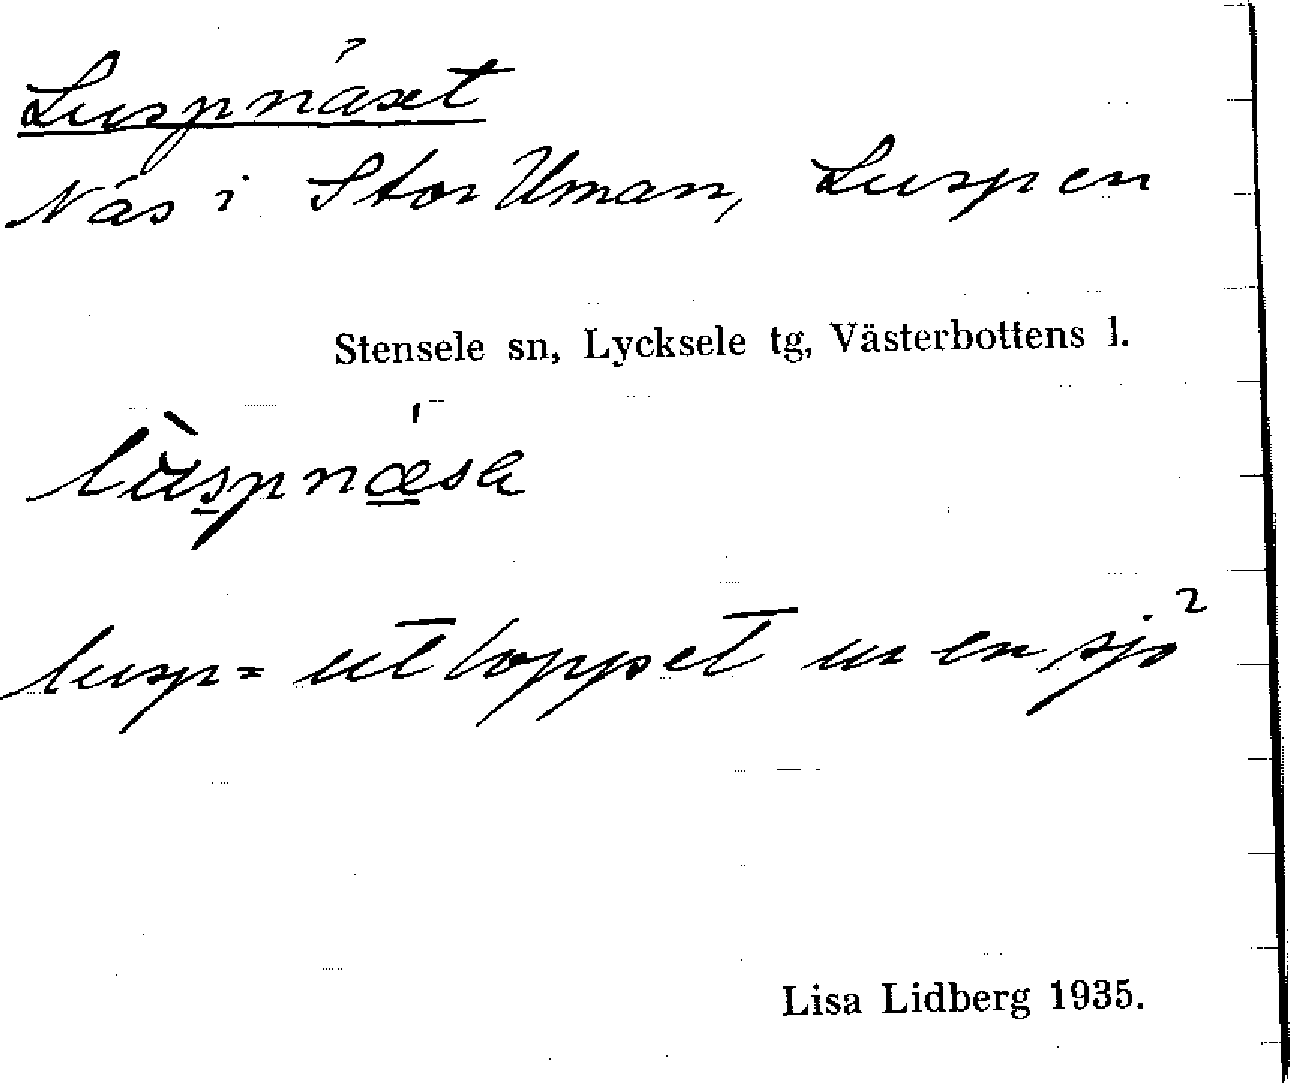 Luspnäset
Näs i Stor Uman, Luspen
Stensele sn, Lycksele tg, Västerbottens l.
lùspnæsɐ
lusp = utloppet ur en sjö
Lisa Lidberg 1935.